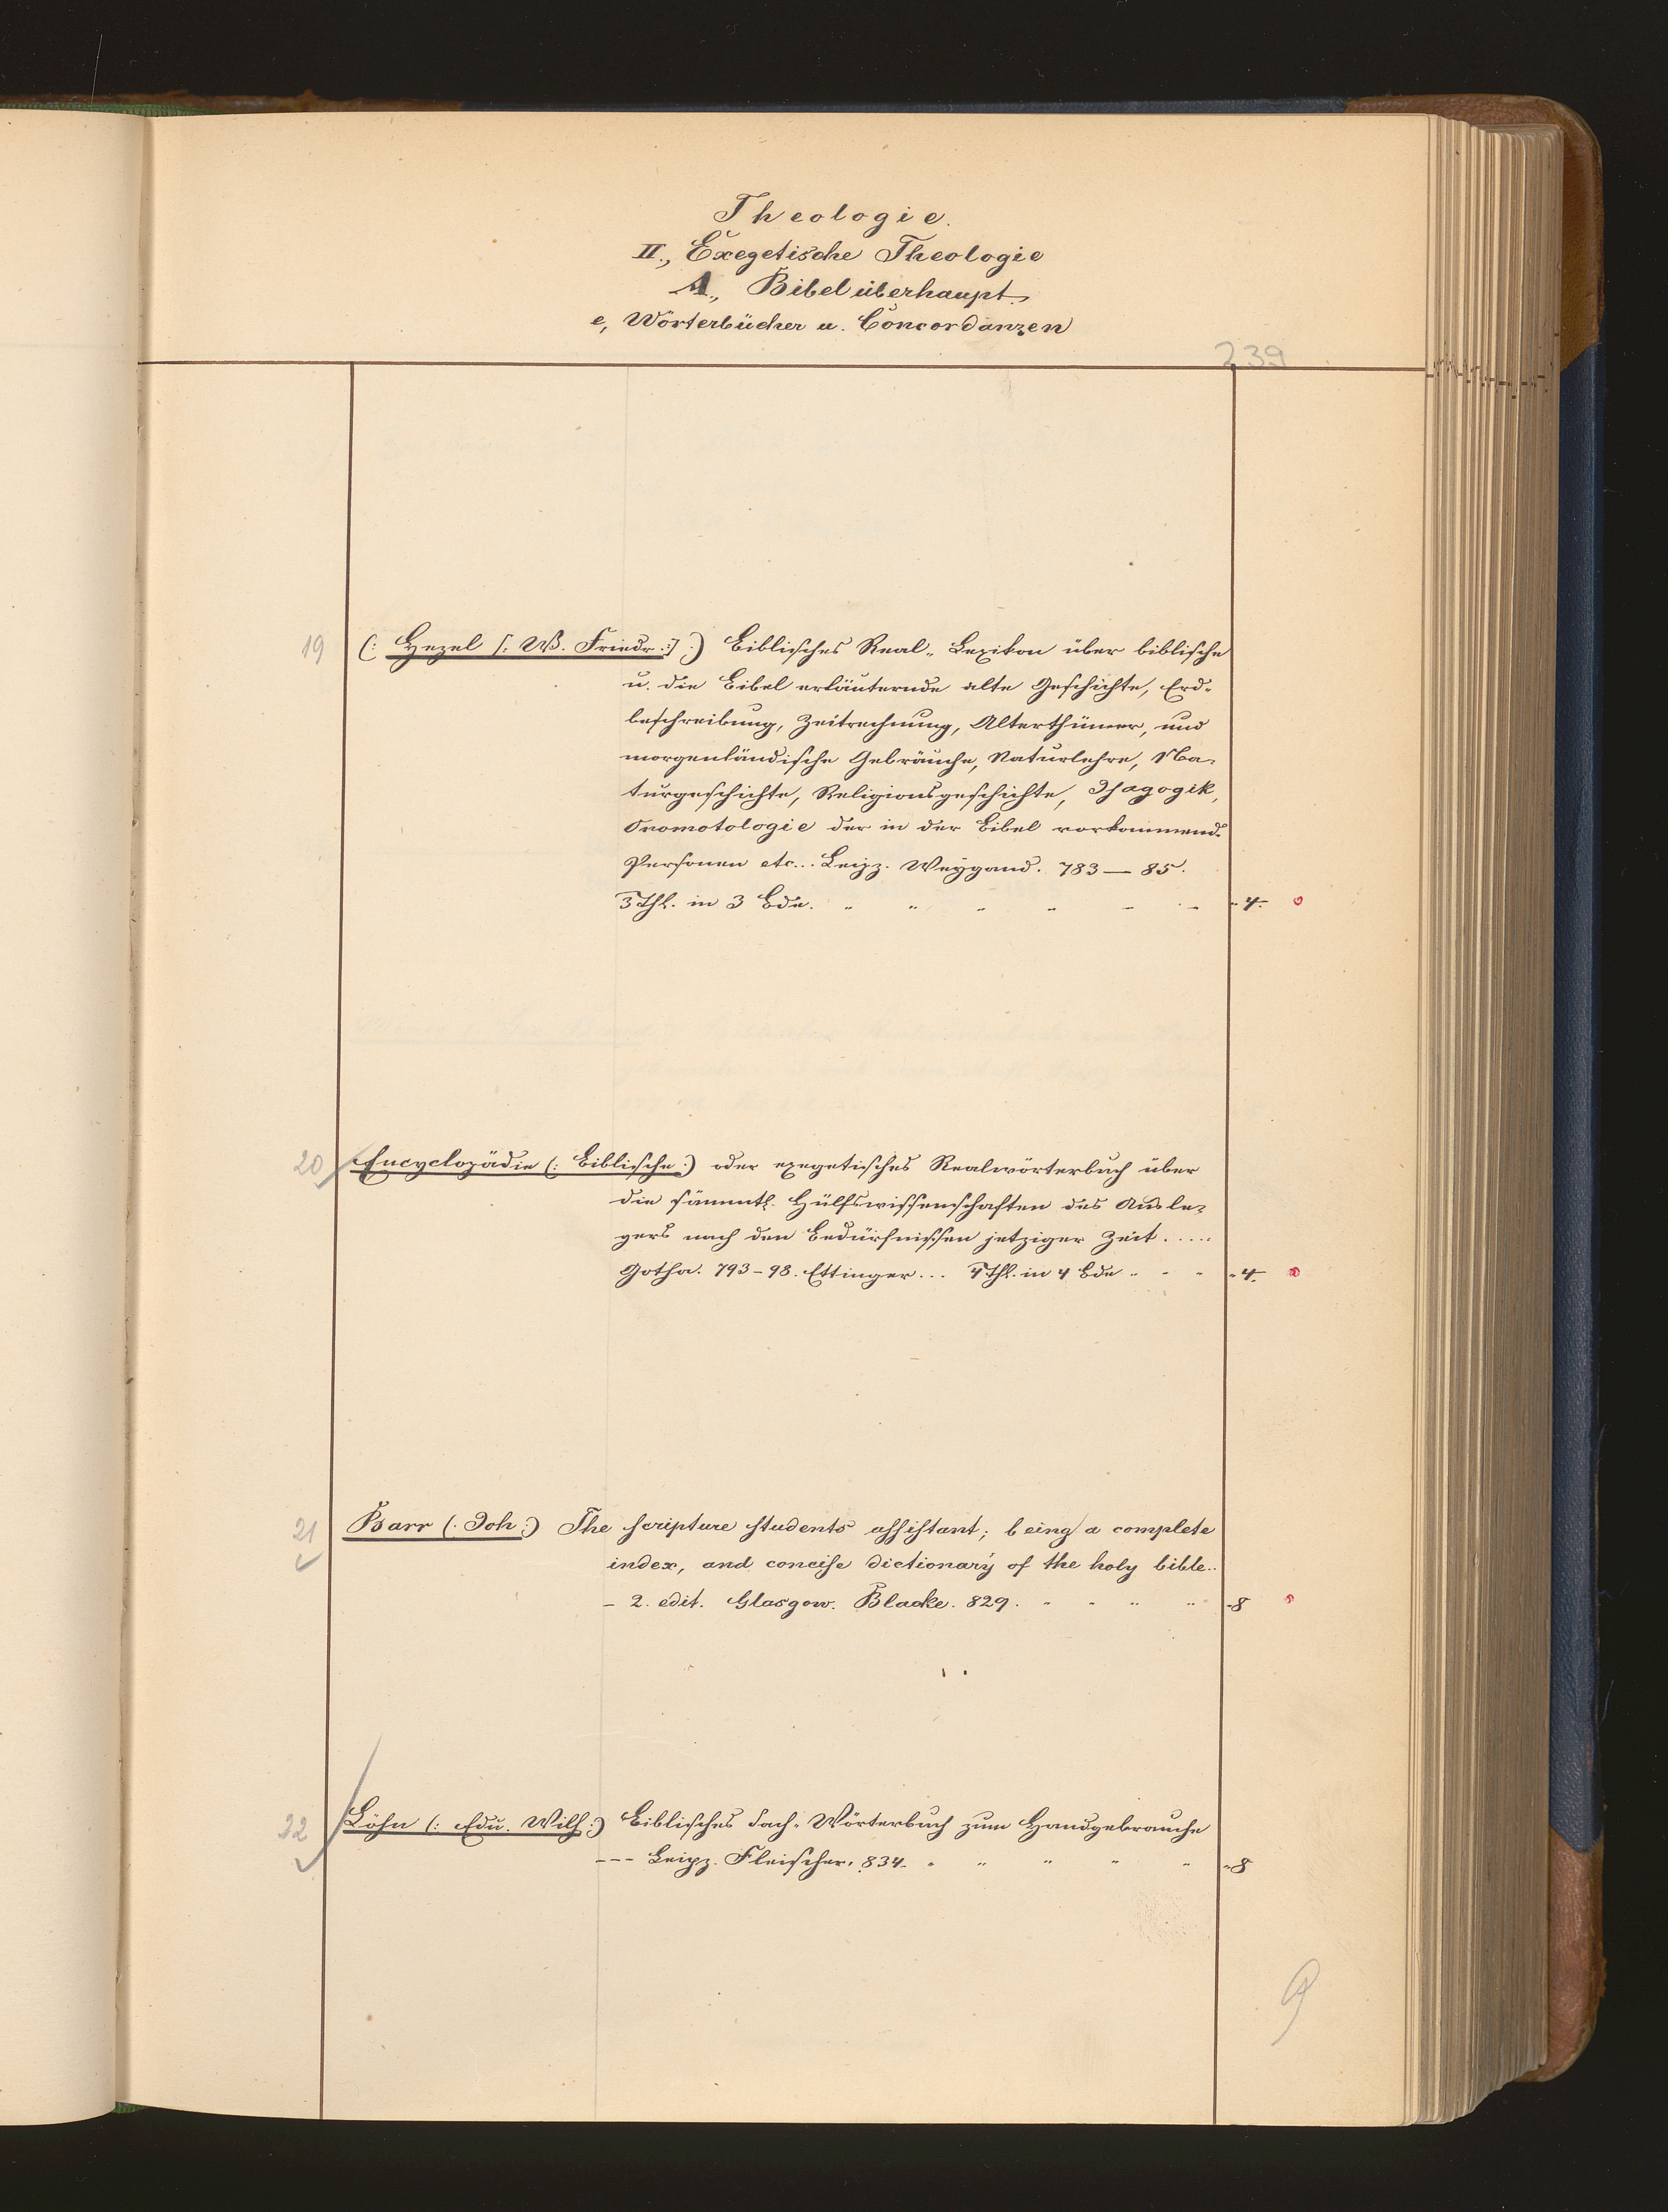 Theologie.
II., Exegetische Theologie
A., Bibel überhaupt.
e, Wörterbücher u. Concordanzen
239
19 (: Hezel [: Wß. Friedr. :] :) Biblisches Real-Lexikon über biblische
u. die Bibel erläuternde alte Geschichte, Erd-
beschreibung, Zeitrechnung, Alterthümer, und
morgenländische Gebräuche, Naturlehre, Na-
turgeschichte, Religionsgeschichte, Isagogik,
Onomotologie der in der Bibel vorkommend.
Personen etc... Leipz. Weygand. 783–85.
3 Thl. in 3 Bde. - 4.
20 Encyclopädie (: Biblische :) oder exegetisches Realwörterbuch über
die sämmtl. Hülfswissenschaften des Ausle-
gers nach den Bedürfnissen jetziger Zeit.....
Gotha. 793–98. Ettinger... 4 Thl. in 4 Bde - 4.
21 Barr (: Joh :) The scripture students assistant; being a complete
index, and concise dictionary of the holy bible..
– 2. edit. Glasgow. Blacke. 829. - 8
22 Löhn (: Edu. Wilh :) Biblisches Sach-Wörterbuch zum Handgebrauche
--- Leipz. Fleischer. 834. - 8
9